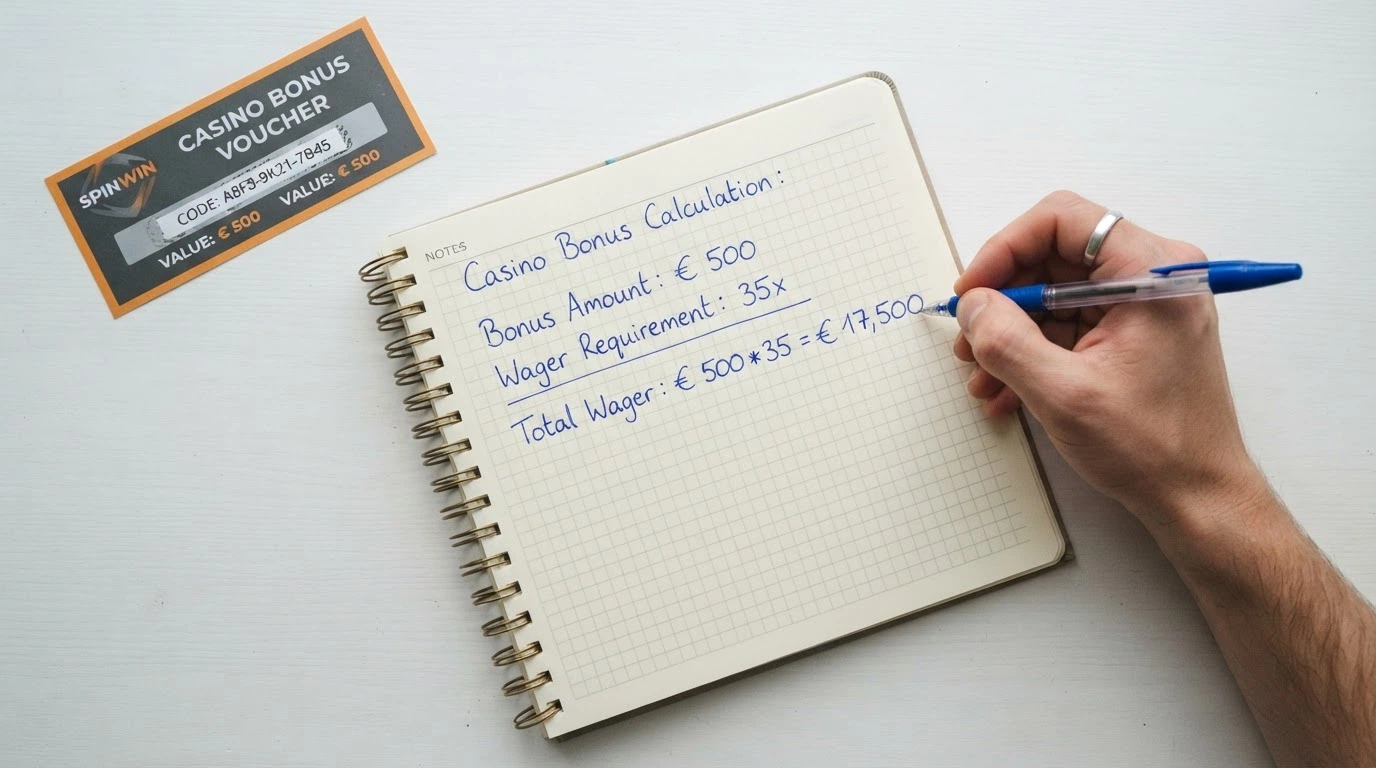 CASINO BONUS
VOUCHER
SPINWIN
VALUE: € 500
VALUE: € 500
NOTES
Casino Bonus Calculation:
Bonus Amount: € 500
Wager Requirement: 35x
Total Wager: € 500*35 = € 17,500